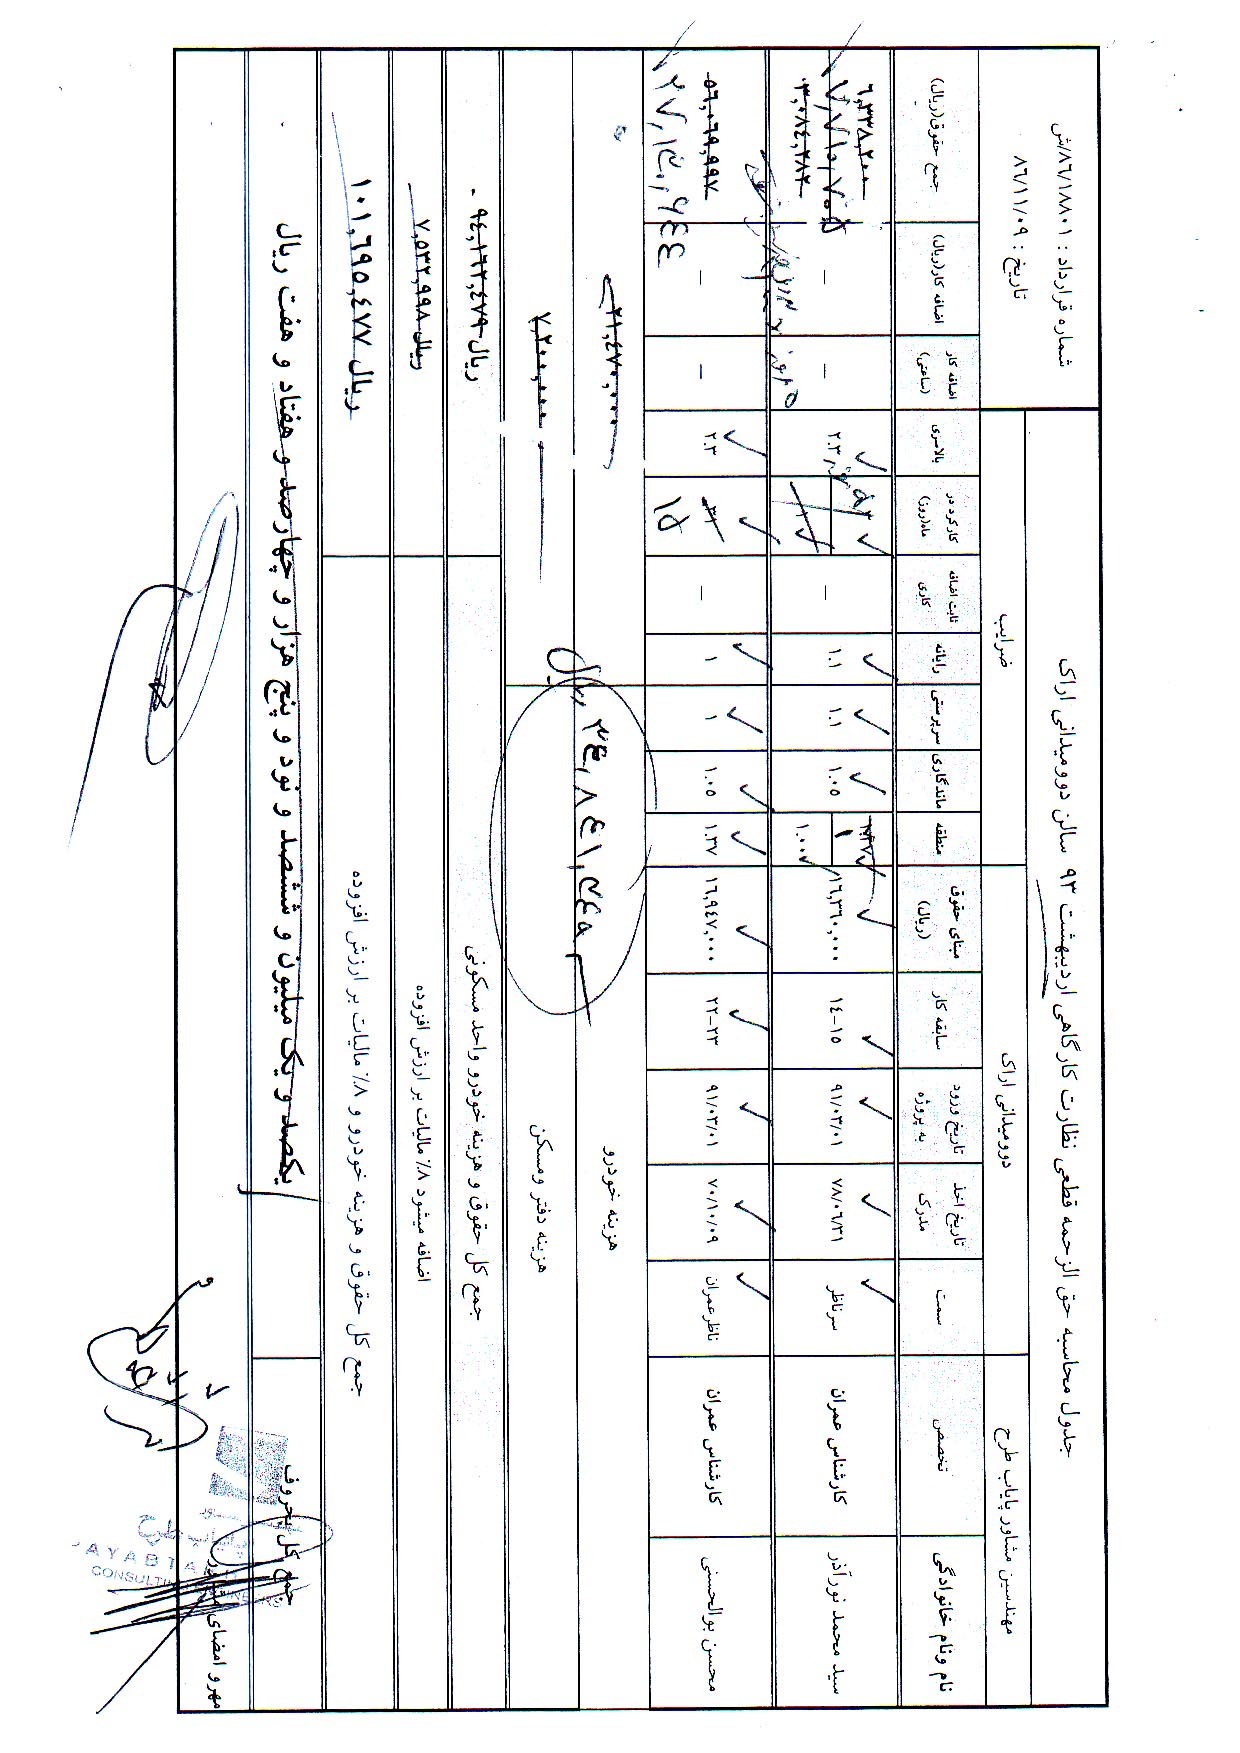 جدول محاسبه حق الزحمه قطعی نظارت کارگاهی اردیبهشت ۹۳ سالن دوومیدانی اراک
شماره قرارداد : ۸۶/۱۸۸۰۱/ش
تاریخ : ۸۶/۱۱/۰۹
مهندسین مشاور پایاب طرح
دوومیدانی اراک
ضرایب
نام ونام خانوادگی
تخصص
سمت
تاریخ اخذ مدرک
تاریخ ورود به پروژه
سابقه کار
مبنای حقوق (ریال)
منطقه
ماندگاری
سرپرستی
رایانه
ثابت اضافه کاری
کارکرد در ماه(روز)
بالاسری
اضافه کار (ساعتی)
اضافه کار(ریال)
جمع حقوق(ریال)
سید محمد نورآذر
کارشناس عمران
سرناظر
۷۸/۰۶/۳۱
۹۱/۰۳/۰۱
۱۴-۱۵
۱۶,۳۶۰,۰۰۰
۱
۱.۰۰
۱.۰۵
۱.۱
۱.۱
–
۳
۲.۳
–
–
۶,۳۳۸,۲۰۰
۳,۰۸۴,۲۸۲
۷,۷۱۰,۷۰۵
محسن بوالحسنی
کارشناس عمران
ناظرعمران
۷۰/۱۰/۰۹
۹۱/۰۳/۰۱
۲۲-۲۳
۱۶,۹۴۷,۰۰۰
۱.۳۷
۱.۰۵
۱
۱
–
۳۱
۱۵
۲.۳
–
–
۵۶,۰۶۹,۹۹۷
۲۷,۱۳۰,۶۴۴
هزینه خودرو
۳۱,۴۷۰,۰۰۰
هزینه دفتر ومسکن
۷,۲۰۰,۰۰۰
۳۴,۸۴۱,۳۴۹ ریال
جمع کل حقوق و هزینه خودرو واحد مسکونی
ریال ۹۴,۱۶۲,۴۷۹
اضافه میشود ۸٪ مالیات بر ارزش افزوده
ریال ۷,۵۳۲,۹۹۸
جمع کل حقوق و هزینه خودرو و ۸٪ مالیات بر ارزش افزوده
ریال ۱۰۱,۶۹۵,۴۷۷
جمع کل بحروف
یکصد و یک میلیون و ششصد و نود و پنج هزار و چهارصد و هفتاد و هفت ریال
مهر و امضای مشاور
پایاب طرح
PAYABTARH
CONSULTING ENGINEERING